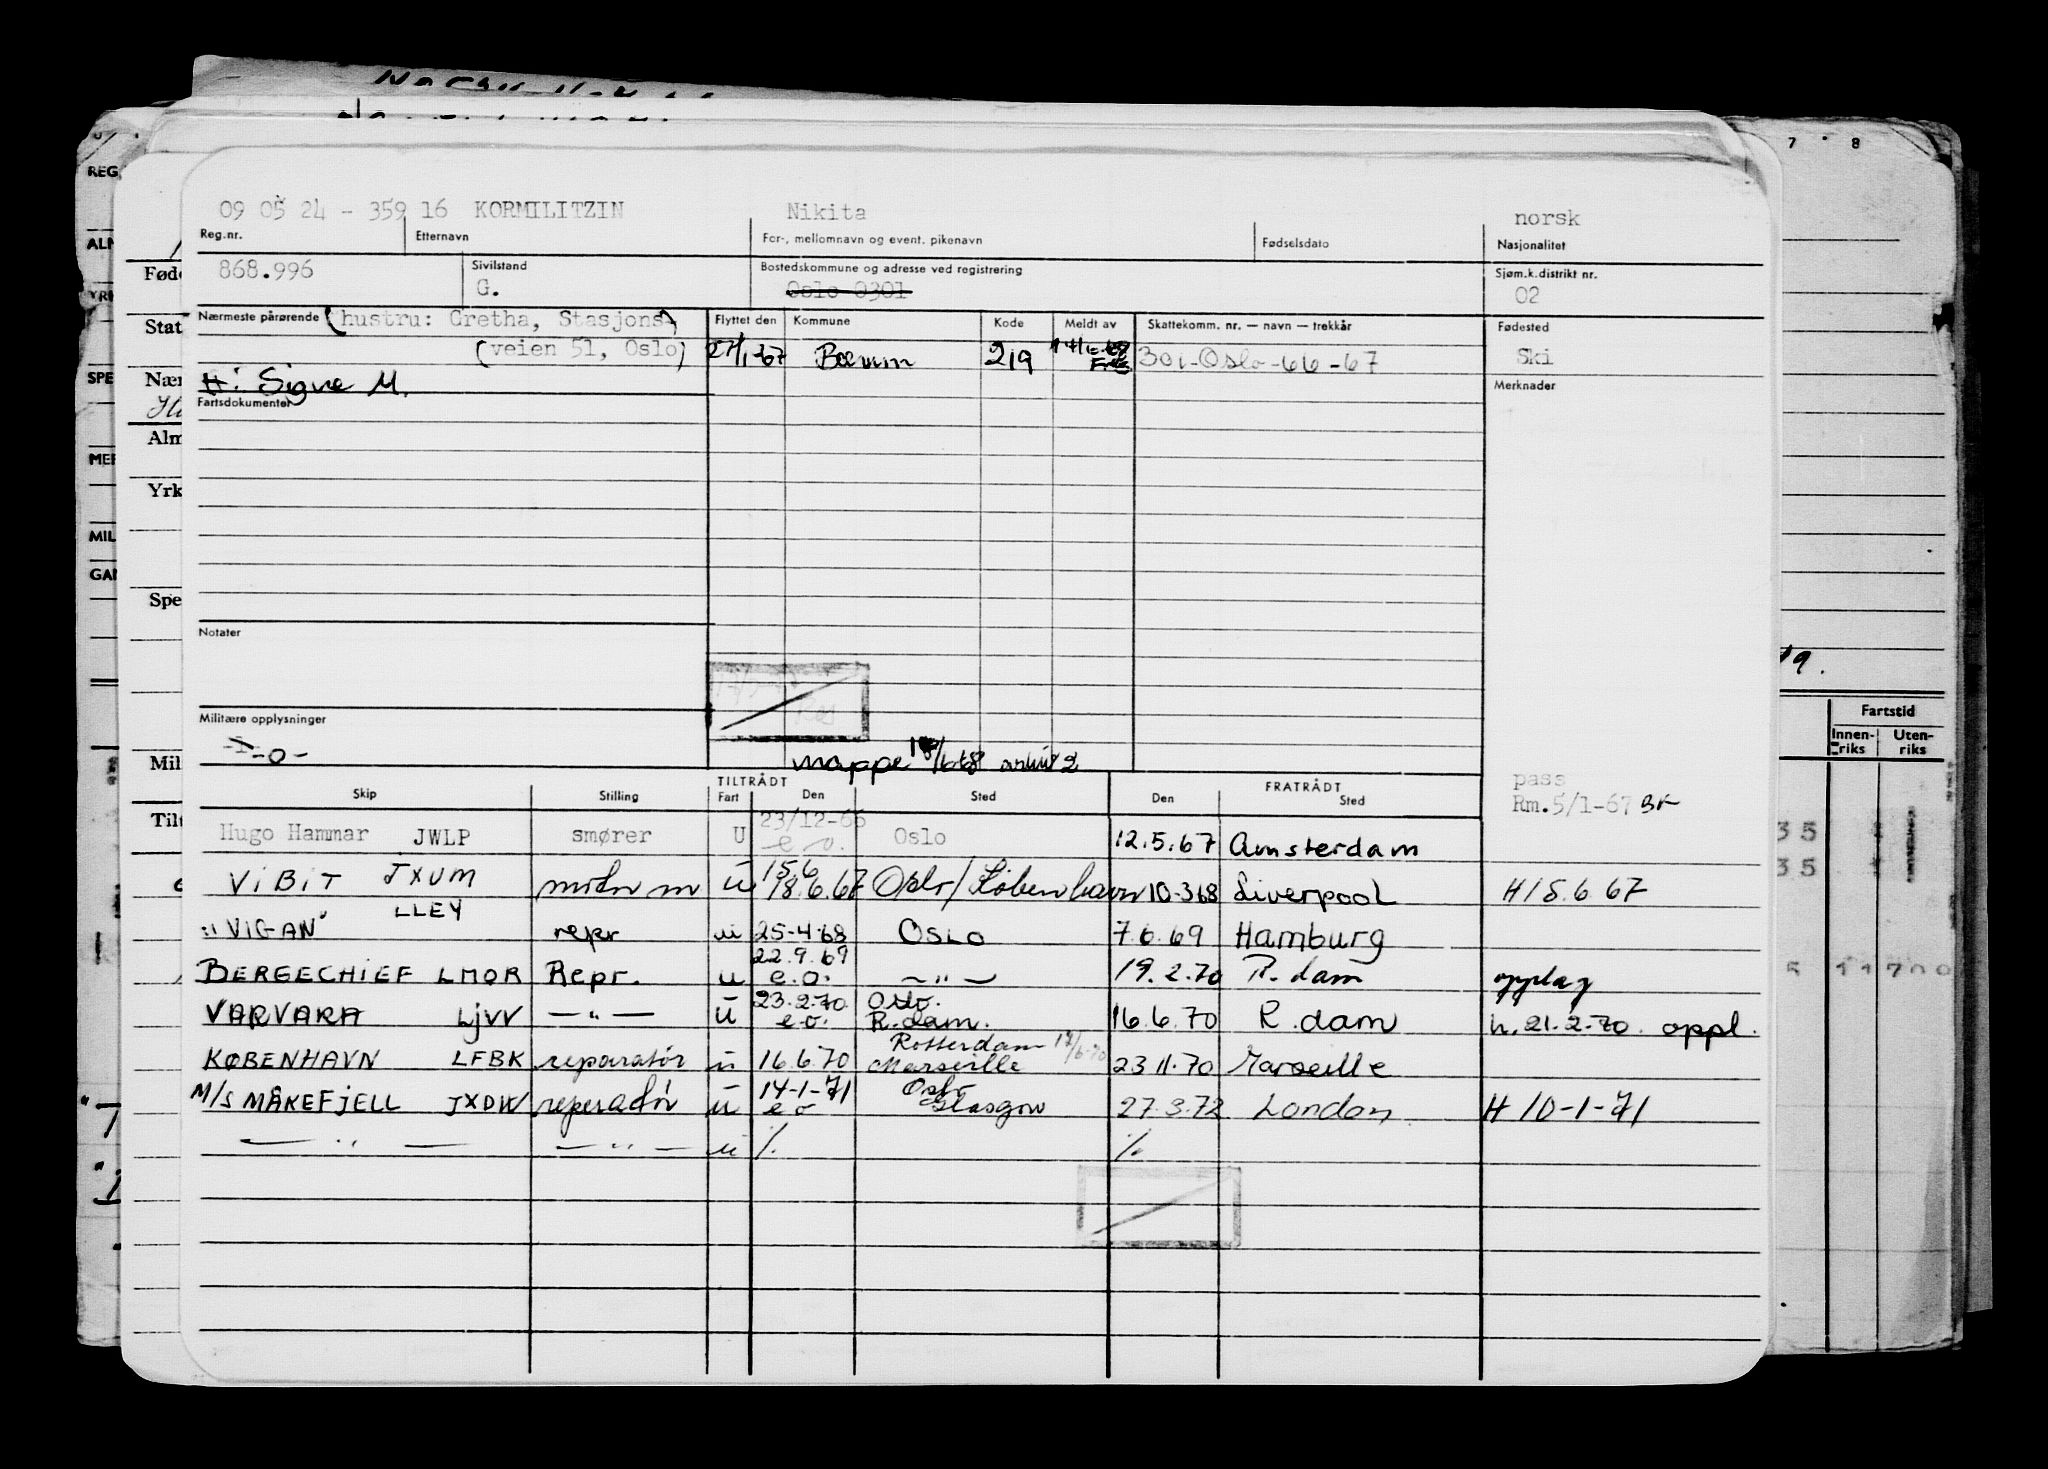 09 05 24 - 359 16 KORMILITZIN Nikita norsk
Reg.nr. Etternavn For-, mellomnavn og event. pikenavn Fødselsdato Nasjonalitet
868.996 Sivilstand Bostedskommune og adresse ved registrering Sjøm.k.distrikt nr.
G. Oslo 0301 02
Nærmeste pårørende (hustru: Gretha, Stasjons- Flyttet den Kommune Kode Meldt av Skattekomm. nr. — navn — trekkår Fødested
(veien 51, Oslo) 27/1-67 Bærum 219 301-Oslo-66-67 Ski
H: Signe M. Merknader
Fartsdokumenter
Notater
Militære opplysninger
-o-
mappe /668 arkiv 2
TILTRÅDT FRATRÅDT pass
Skip Stilling Fart Den Sted Den Sted Rm.5/1-67 BK
Hugo Hammar JWLP smører U 23/12-66 e o. Oslo 12.5.67 Amsterdam
ViBiT JXUM u 15.6 18.6.67 Oslo/København 10-368 Liverpool H18.6.67
"VIGAN" LLEY repr u 25-4-68 OSLO 7.6.69 Hamburg
BERGECHIEF LMOR Repr. u 22.9.69 e.o. — " — 19.2.70 R.dam opplag
VARVARA LJVV — " — u 23.2.70 e.o. Oslo. R.dam. 16.6.70 R.dam h.21.2.70 oppl.
KØBENHAVN LFBK reparatør u 16.6.70 Rotterdam 17/6-70 Marseille 23.11.70 Marseille
M/S MÅKEFJELL JXDW reperatør u 14-1-71 e o Oslo Glasgow 27.3.72 London H 10-1-71
— " — — " — u ./. ./.
REG
ALM
Føde
YRK
Stat
SPE
Nær
Alm
MER
Yrk
MIL
GAN
Spe
Mil
Tilt
7 8
19.
Fartstid
Innen-riks Uten-riks
35
35
5 11700